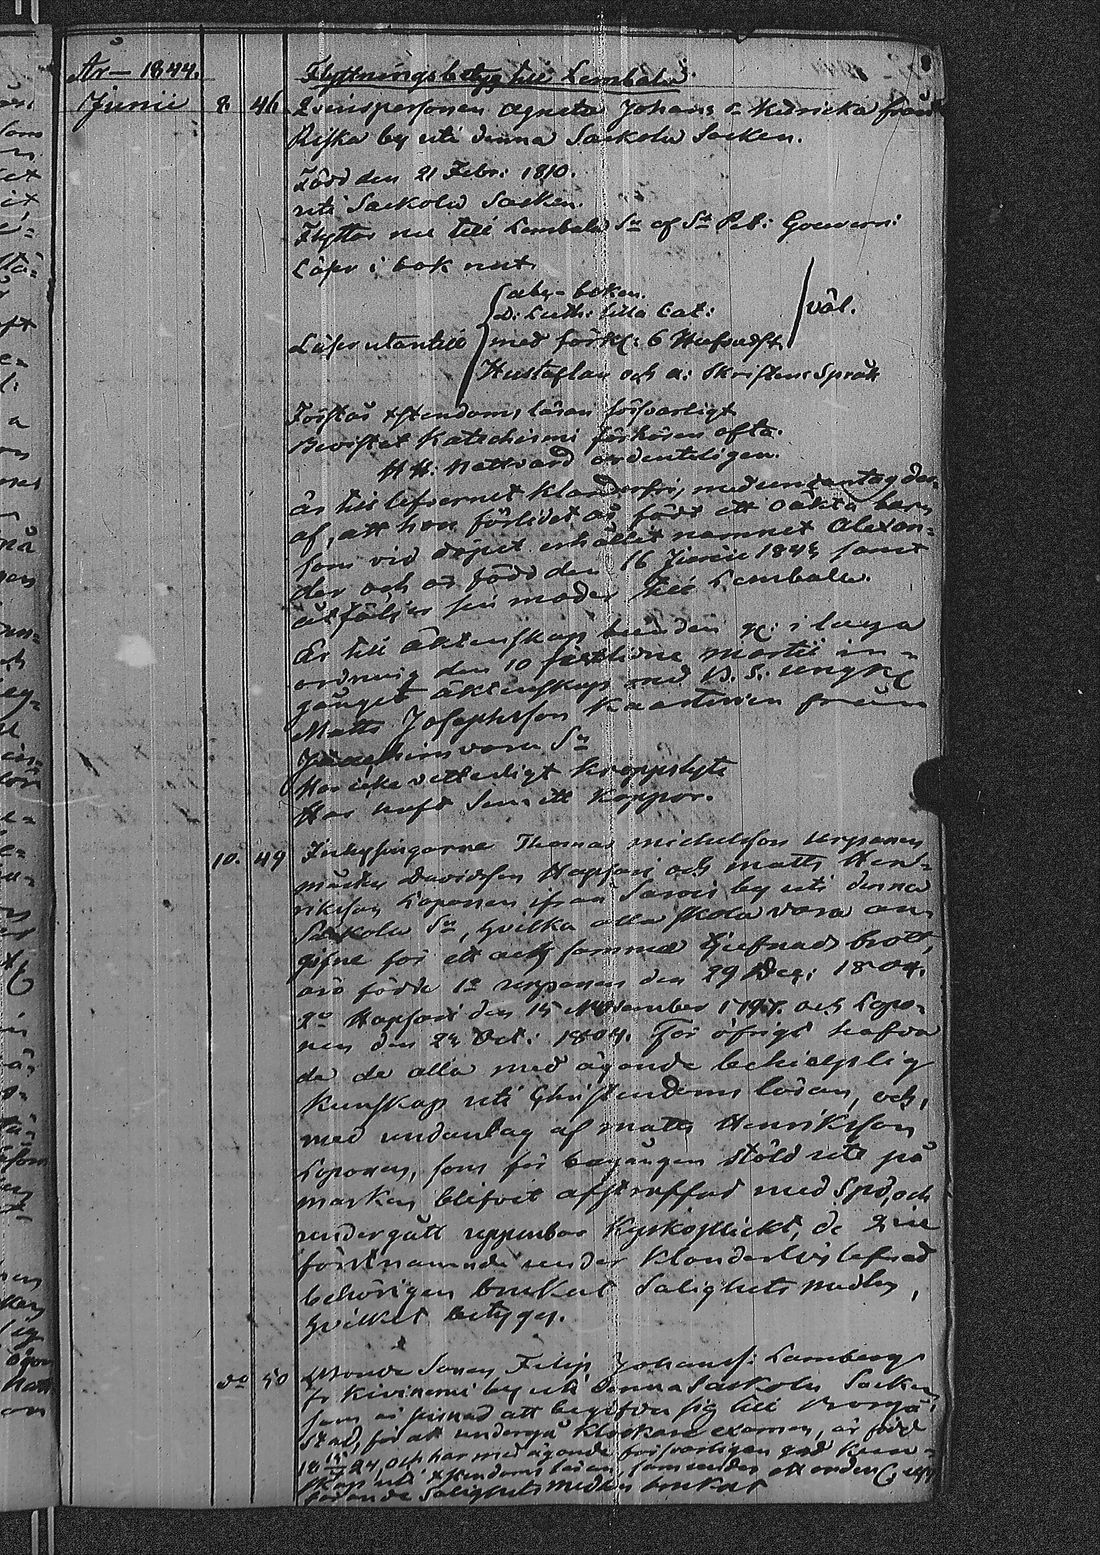 År – 1844.
Flyttningsbetyg till Lembala.
Junii 8. 46 Qvinspersonen Agneta Johans dr Kedricka från
Riska by uti denna Sackola Socken.
Född den 21 Febr: 1810.
uti Sackola Socken.
Flyttar nu till Lembala Sn af St Pet: Gouvern:
Läser i bok rent
abc-boken.
D: Luth: lilla Cat: väl.
Läser utantill med förkl: 6 Hufvudst.
Hustaflan och a: Skriftens Språk
Förstår Xstendoms läran försvarligt
Bevistat Katechismi förhören ofta.
H H: Nattvard ordenteligen.
är till lefvernet klanderfri, med undantag der-
af, att hon förlidet år födt ett oäkta barn
som vid döpet erhållet namnet Alexan-
der och är född den 16 Junii 1843 samt
åtföljer sin moder till Lembala.
Är till äktenskap bunden gm i laga
ordning den 10 sistlidne martii in-
gånget äktenskap med B. S. ungk
Matts Josephsson Kaartinen från
Jäächimvara Sn
Har icke vetterligt kroppslyte
Har haft sina Koppor.
10. 49 Inhysingarne Thomas Michelsson
Davidsson Hapsari och Matts Hen-
riksson Loponen ifrån by uti denna
Sackola Sn, hvilka alla skola vara an-
gifne för ett och samma tjufnads brott,
äro födde 1o den 29 Dec: 1804.
2o Hapsari den 15 November och Lopo-
nen den 24 Oct: 1804. För öfrigt hafva
de de alla med ägande behielplig
kunskap uti Christendoms läran, och,
med undantag af Matts Henriksson
Loponen, som för begången stöld uti på
marken blifvit afstraffad med Spö, och
undergått uppenbar Kyrkoplickt, de 2ne
förstnämnde under klanderlös lefnad
behörigen brukat Salighets medlen,
hvilket betygas.
do 50 Sonen Filip Johanss: Lamberg
fr Kiviniemi by uti denna Sackola Socken
som är sinnad att begifva sig till Borgå
Stad, för att undergå Klockare examen, är född
18 24, och har med ägande försvarligen god kun-
skap uti Xstendoms läran,
Salighets medlen brukat